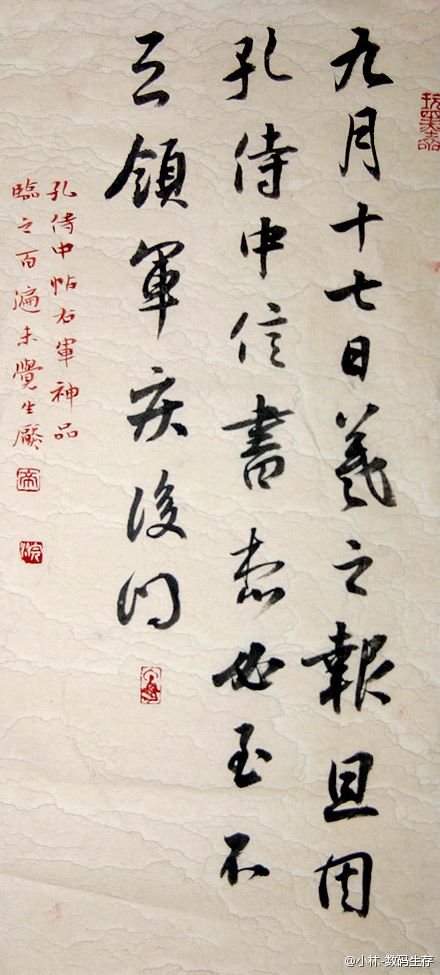 九月十七日羲之報且因
孔侍中信書想必至不
知領軍疾後問
孔侍中帖右軍神品
臨之百遍未覺生厭
@小林-数码生存